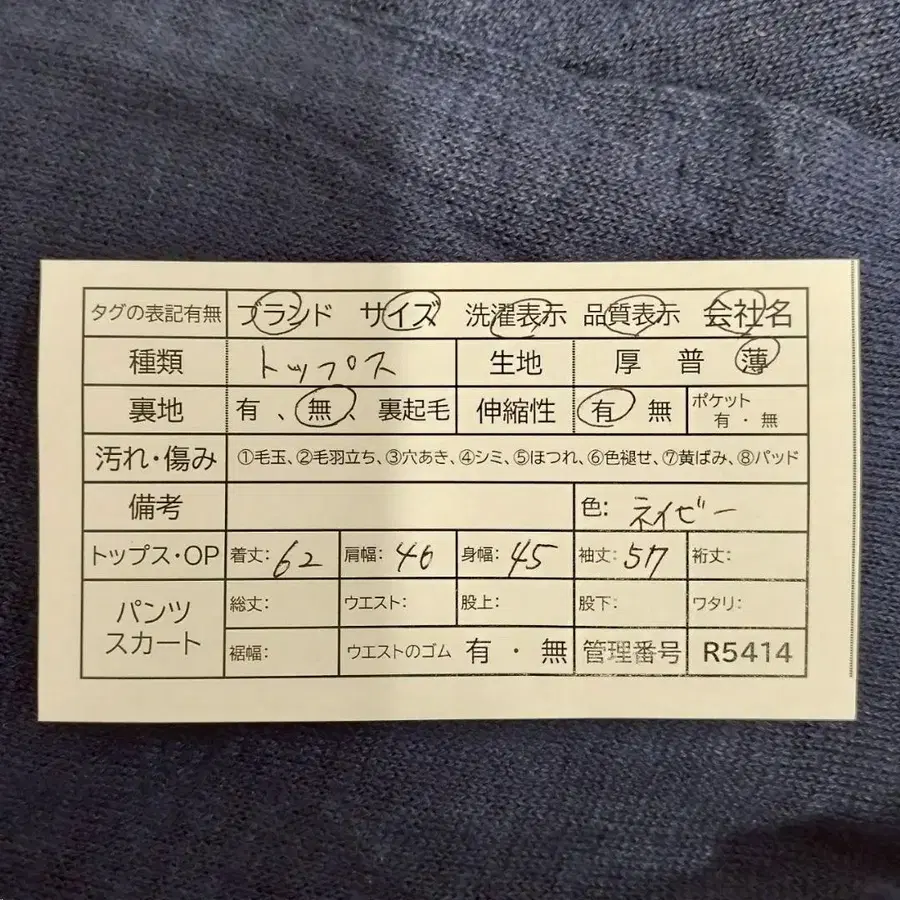 タグの表記有無 ブランド サイズ 洗濯表示 品質表示 会社名
種類 トップス 生地 厚 普 薄
裏地 有、無、裏起毛 伸縮性 有 無 ポケット 有・無
汚れ・傷み ①毛玉、②毛羽立ち、③穴あき、④シミ、⑤ほつれ、⑥色褪せ、⑦黄ばみ、⑧パッド
備考 色: ネイビー
トップス・OP 着丈: 62 肩幅: 40 身幅: 45 袖丈: 57 裄丈:
パンツ スカート 総丈: ウエスト: 股上: 股下: ワタリ:
裾幅: ウエストのゴム 有・無 管理番号 R5414